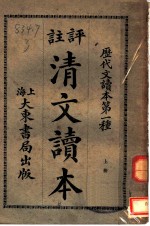 歷代文讀本第一種
上冊
評註
清文讀本
上海
大東書局出版